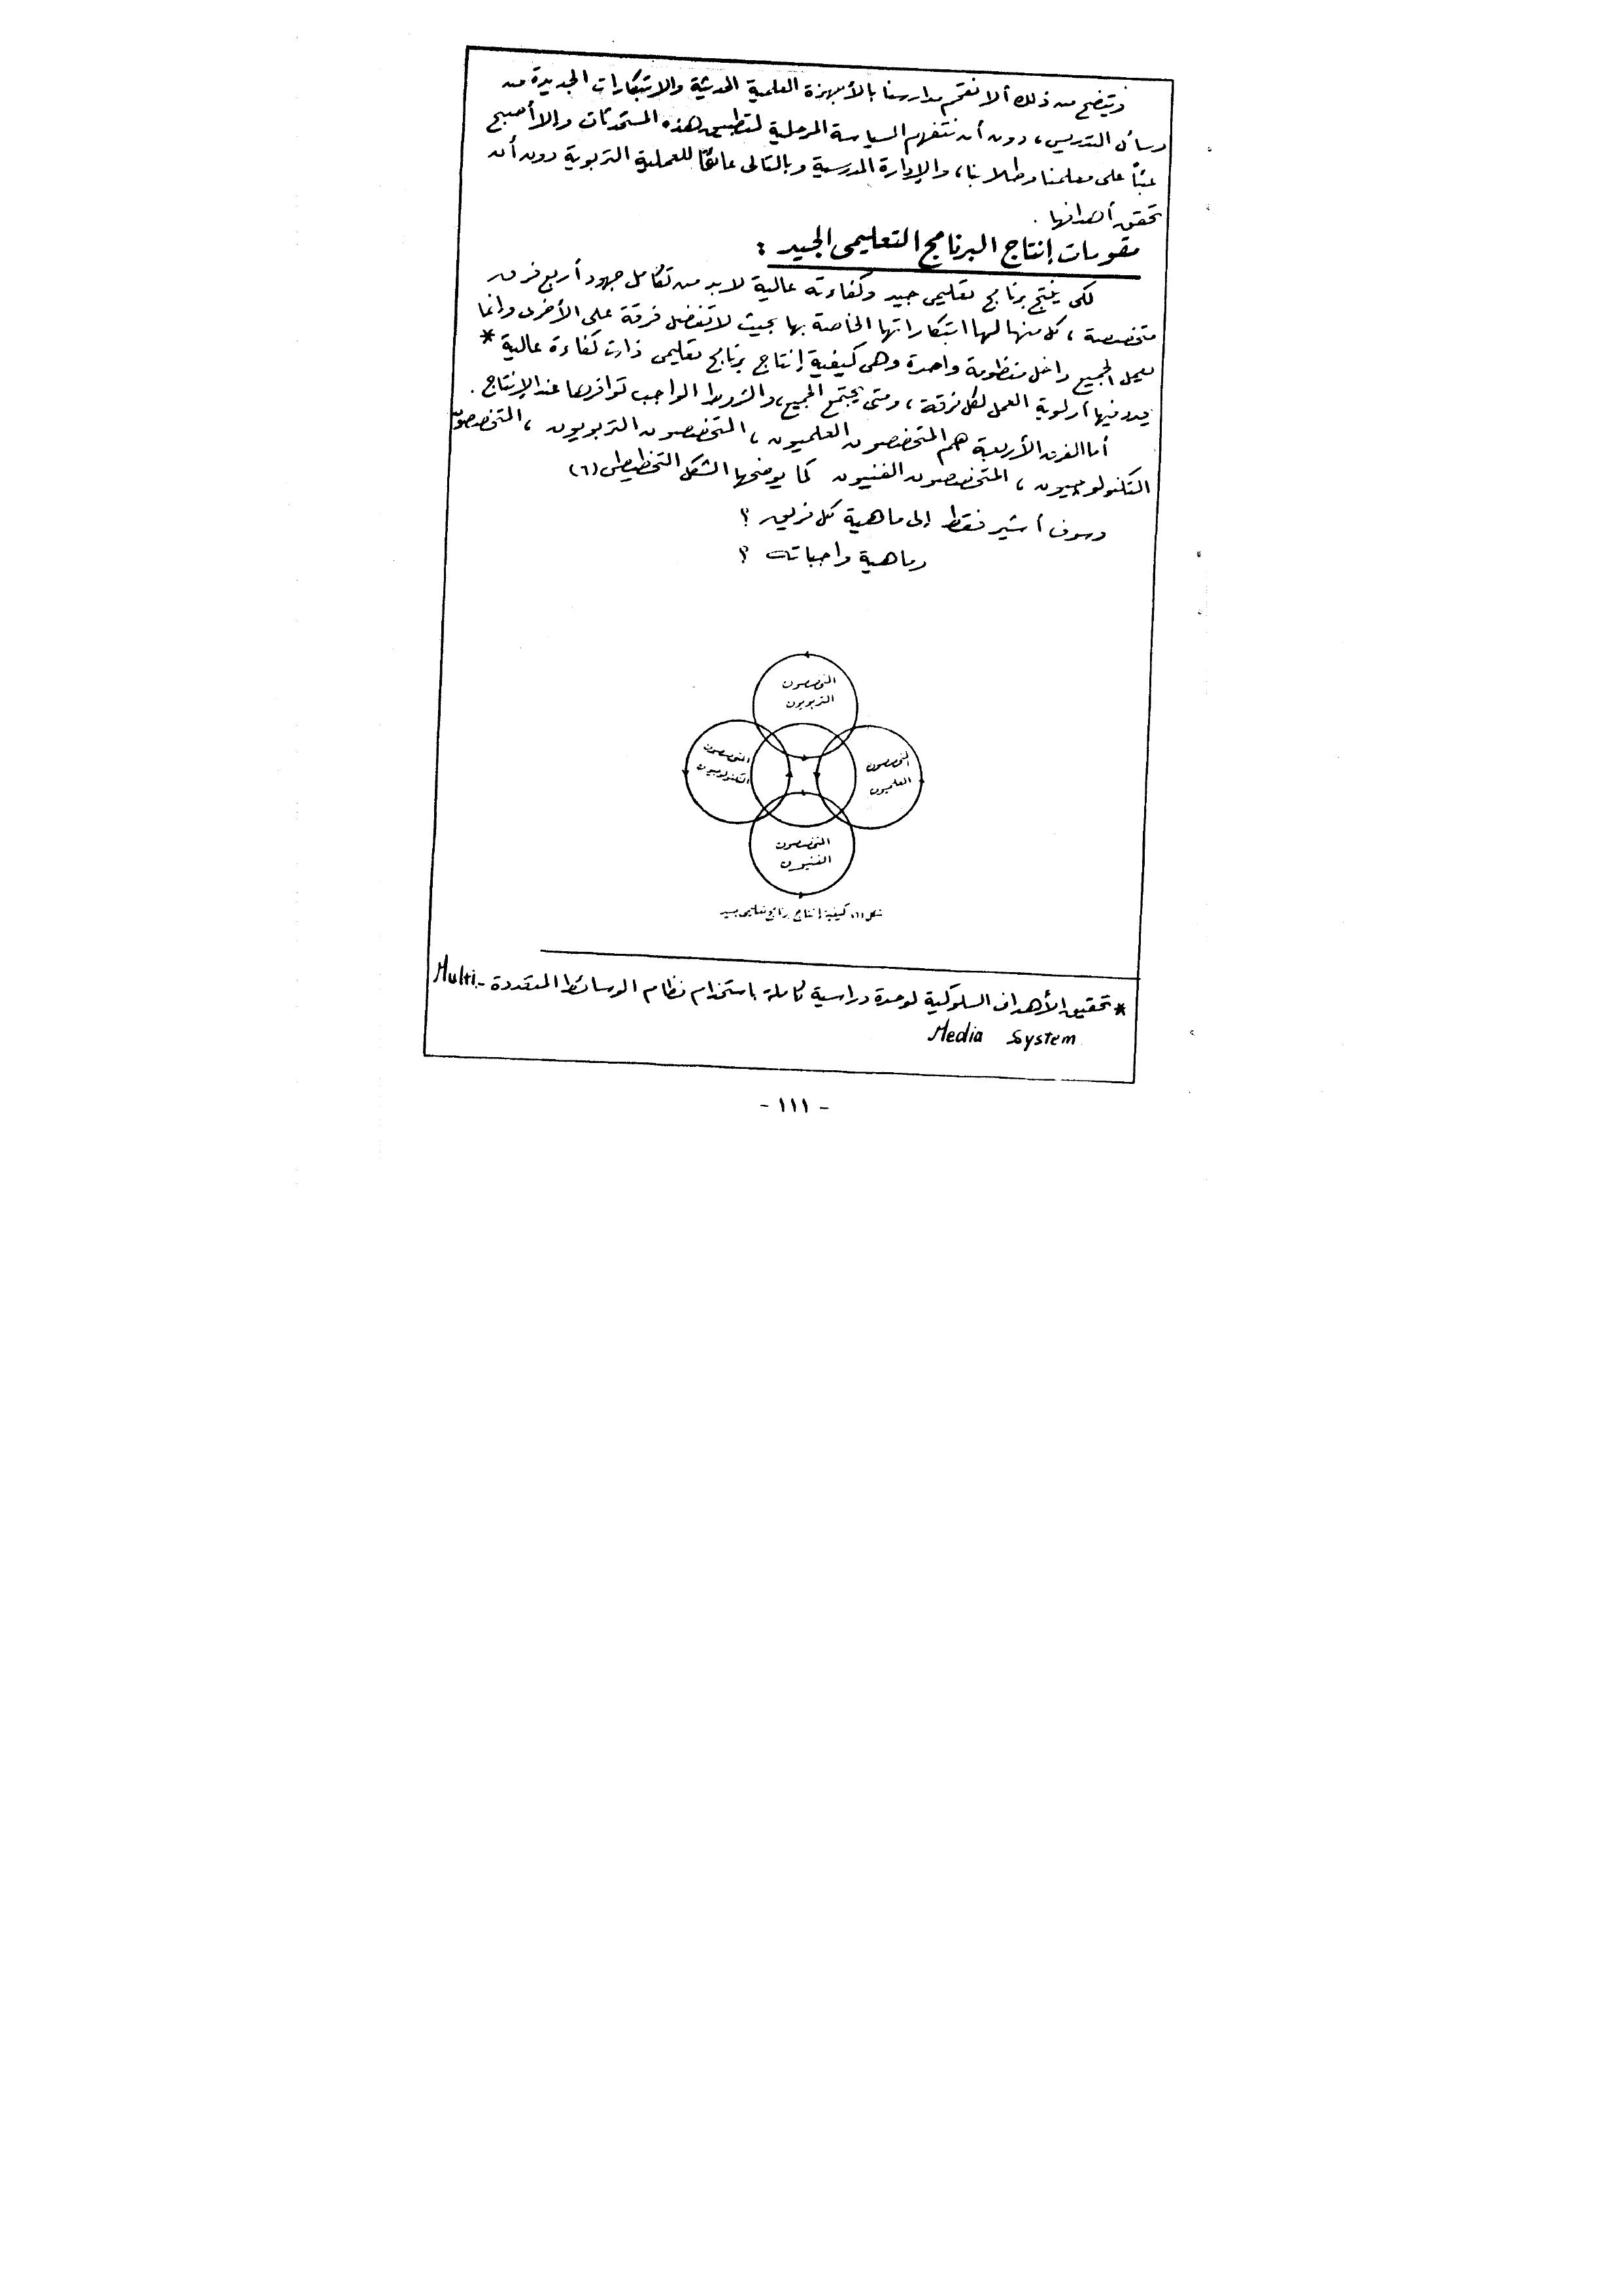 ويتضح من ذلك ألا نقحم مدارسنا بالأجهزة العلمية الحديثة والابتكارات الجديدة من
وسائل التدريس، دون أن نتفهم السياسة المرحلية لتطبيق هذه المستحدثات وإلا أصبح
عبئاً على معلمنا وطلابنا، والإدارة المدرسية وبالتالى عائقاً للعملية التربوية دون أن
تحقق أهدافها .
مقومات إنتاج البرنامج التعليمى الجيد :
لكى ينتج برنامج تعليمى جيد وكفاءته عالية لابد من تكامل جهود أربع فرق
متخصصة ، كل منها لها ابتكاراتها الخاصة بها بحيث لا تفضل فرقة على الأخرى وانما
يعمل الجميع داخل منظومة واحدة وهى كيفية إنتاج برنامج تعليمى ذات كفاءة عالية *
يحدد فيها أولوية العمل لكل فرقة ، ومتى يجتمع الجميع، والشروط الواجب توافرها عند الإنتاج .
أما الفرق الأربعة هم المتخصصون العلميون ، المتخصصون التربويون ، المتخصصون
التكنولوجيون ، المتخصصون الفنيون كما يوضحها الشكل التخطيطى (٦)
وسوف أشير فقط إلى ماهية كل فريق ؟
وماهية واجباته ؟
المتخصصون
التربويون
المتخصصون
العلميون
المتخصصون
التكنولوجيون
المتخصصون
الفنيون
شكل (٦) كيفية إنتاج برنامج تعليمى جيد
* تحقيق الأهداف السلوكية لوحدة دراسية كاملة باستخدام نظام الوسائط المتعددة Multi-
Media System
- ١١١ -